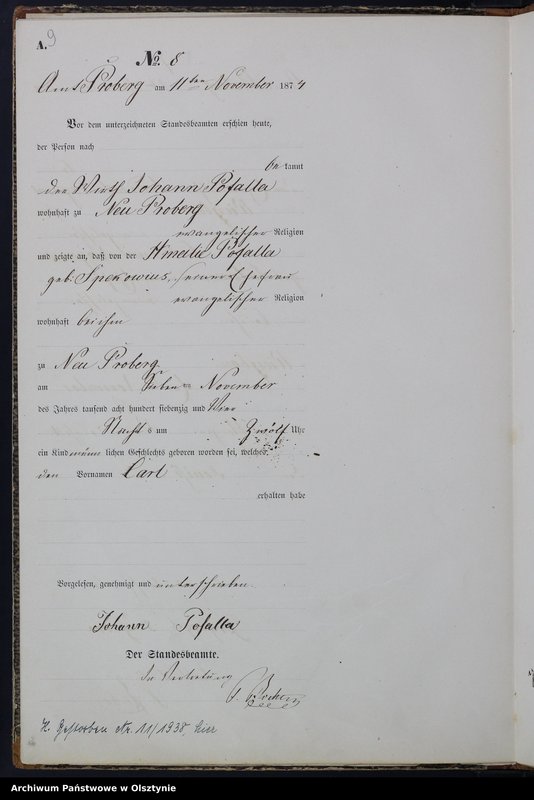 A. 9
No. 8
Amt Proberg am 11ten November 1874
Vor dem unterzeichneten Standesbeamten erschien heute,
der Person nach
bekannt
der Wirth Johann Pofalla
wohnhaft zu Neu Proberg
evangelischer Religion
und zeigte an, daß von der Amalie Pofalla
geb. Spekowius, seiner Ehefrau
evangelischer Religion
wohnhaft bei ihm
zu Neu Proberg
am Sieben ten November
des Jahres tausend acht hundert siebenzig und Vier
Nachts um Zwölf Uhr
ein Kind männlichen Geschlechts geboren worden sei, welches
den Vornamen Carl
erhalten habe
Vorgelesen, genehmigt und unterschrieben.
Johann Pofalla
Der Standesbeamte.
In Vertretung
Gestorben Nr. 11/1938, hier
Archiwum Państwowe w Olsztynie